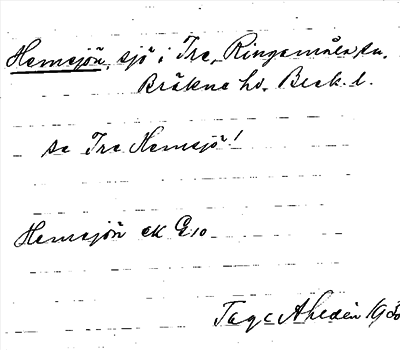 Hemsjön, sjö i Tre, Ringamåla sn.
Bräkne hd. Blek. l.
se Tre Hemsjö!
Hemsjön ek G10
Tage Ahldén 1930